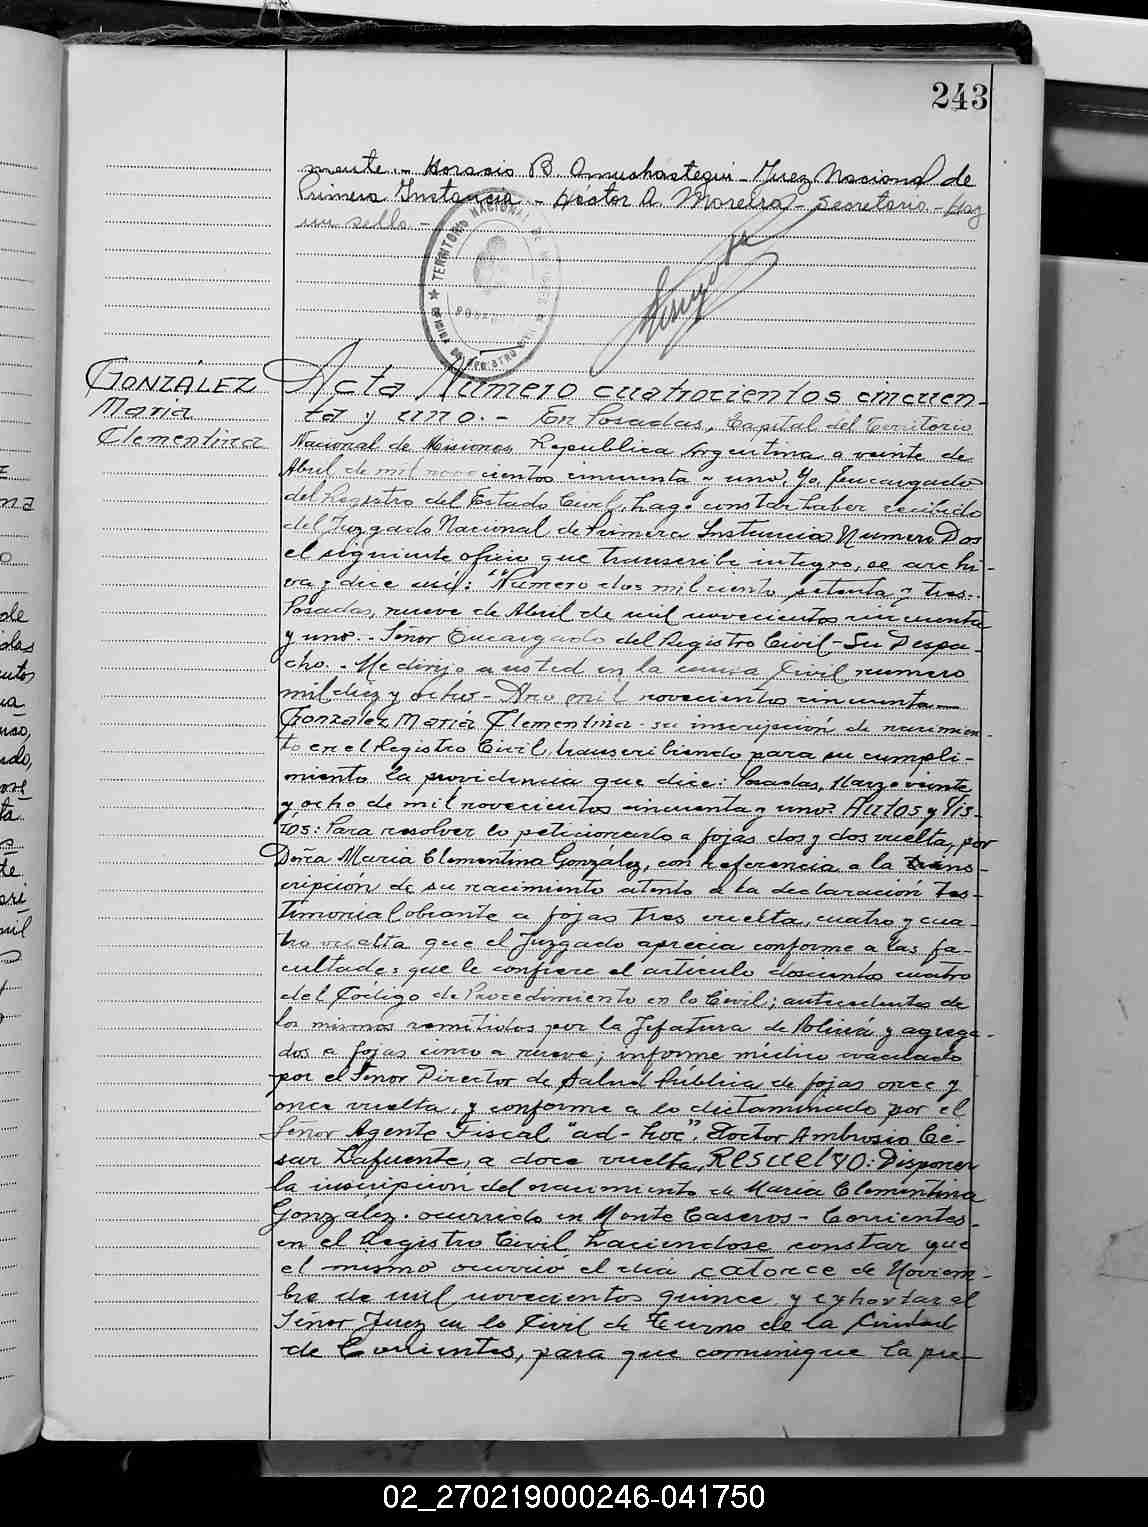 243
mente.- Horacio B. Amuchastegui - Juez Nacional de
Primera Instancia.- Héstor A. Moreira - Secretario - Hay
un sello -
TERRITORIO NACIONAL DE MISIONES
OFICINA DEL REGISTRO CIVIL
POSADAS
GONZÁLEZ
María
Clementina
Acta Número cuatrocientos cincuen-
ta y uno.- En Posadas, Capital del Territorio
Nacional de Misiones, Republica Argentina a veinte de
Abril de mil novecientos cincuenta y uno, Yo, Encargado
del Registro del Estado Civil, hago constar haber recibido
del Juzgado Nacional de Primera Instancia Numero Dos
el siguiente oficio que transcribe integro, se archi-
va y dice así: "Numero dos mil ciento setenta y tres.-
Posadas, nueve de Abril de mil novecientos cincuenta
y uno.- Señor Encargado del Registro Civil - Su Despa-
cho.- Me dirijo a usted en la causa Civil numero
mil diez y ocho - Año mil novecientos cincuenta —
González María Clementina - su inscripción de nacimien-
to en el Registro Civil, transcribiendo para su cumpli-
miento la providencia que dice: Posadas, Marzo veinte
y ocho de mil novecientos cincuenta y uno. Autos y Vis-
tos: Para resolver lo peticionado a fojas dos y dos vuelta, por
Doña Maria Clementina González, con referencia a la ins-
cripción de su nacimiento atento a la declaración tes-
timonial obrante a fojas tres vuelta, cuatro y cua-
tro vuelta que el Juzgado aprecia conforme a las fa-
cultades que le confiere el artículo doscientos cuatro
del Código de Procedimiento en lo Civil; antecedentes de
los mismos remitidos por la Jefatura de Policía y agrega-
dos a fojas cinco a nueve; informe médico evacuado
por el Señor Director de Salud Pública de fojas once y
once vuelta, y conforme a lo dictaminado por el
Señor Agente Fiscal "ad-hoc", Doctor Ambrosio Cé-
sar Lafuente, a doce vuelta, RESUELVO: Disponer
la inscripción del nacimiento de María Clementina
González, ocurrido en Monte Caseros - Corrientes -
en el Registro Civil haciendose constar que
el mismo ocurrió el dia catorce de Noviem-
bre de mil novecientos quince, y exhortar al
Señor Juez en lo Civil de Turno de la Ciudad
de Corrientes, para que comunique la pre-
02_270219000246-041750